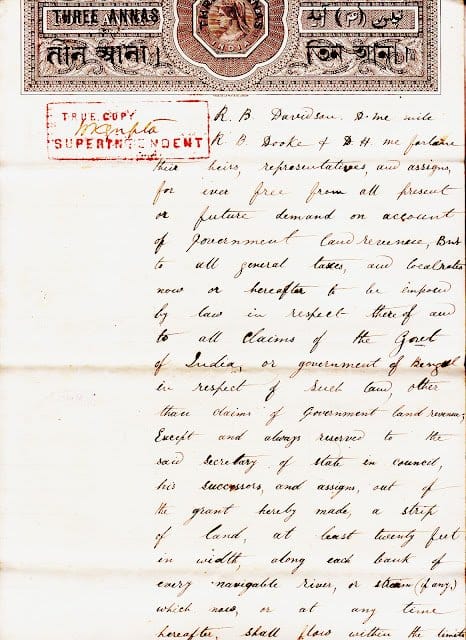 THREE ANNAS
THREE ANNAS
INDIA
तीन आना।
তিন আনা।
TRUE COPY
SUPERINTENDENT
R. B. Davidson. D. me
R B Dooke & D. H. me
their heirs, representatives, and assigns,
for ever free from all present
or future demand on account
of Government land revenue, But
to all general taxes, and local rates
now or hereafter to be imposed
by law in respect thereof and
to all claims of the Govt
of India, or government of Bengal
in respect of such land, other
than claims of Government land revenue;
Except and always reserved to the
said secretary of state in council,
his successors, and assigns, out of
the grant hereby made, a strip
of land, at least twenty feet
in width, along each bank of
every navigable river, or stream (if any,)
which now, or at any time
hereafter, shall flow within the limits